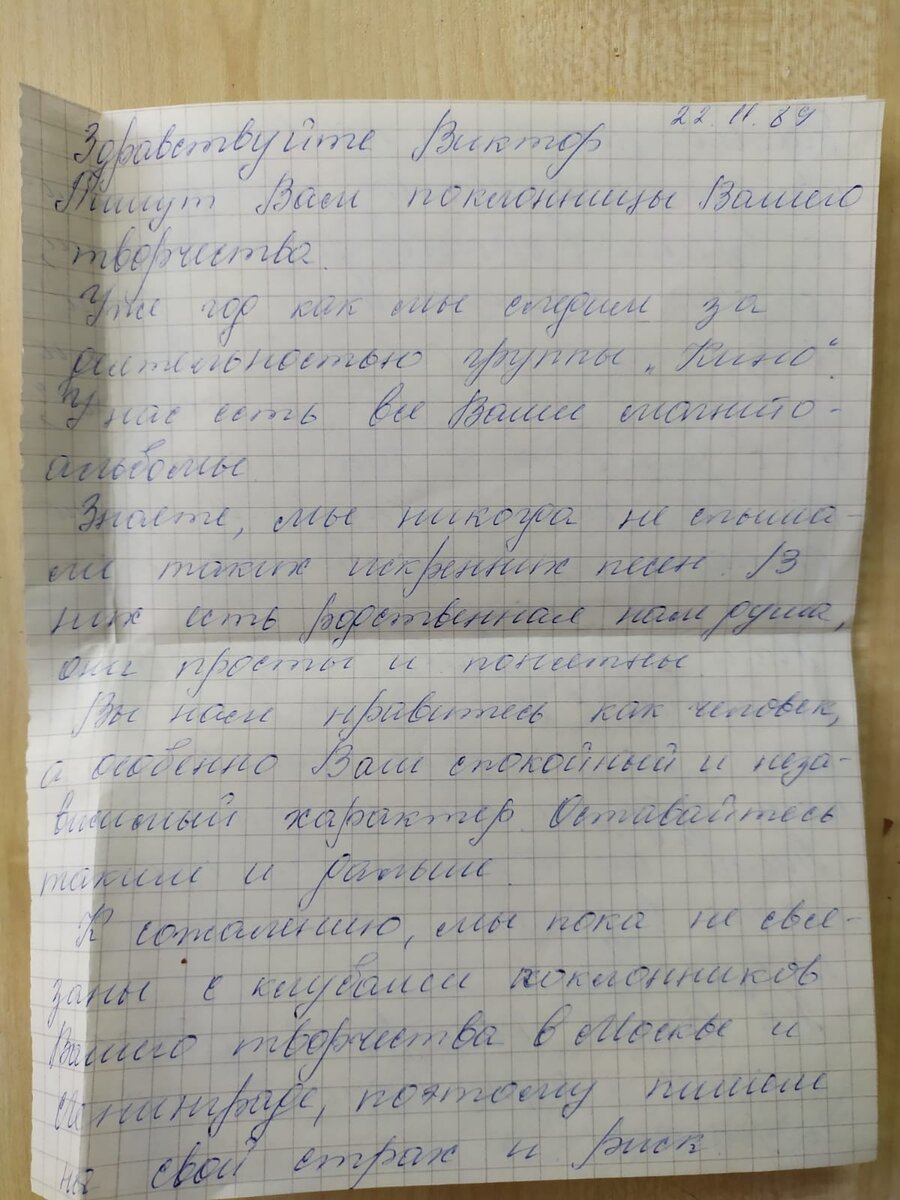 22.11.89
Здравствуйте Виктор
Пишут Вам поклонницы Вашего
творчества.
Уже год как мы следим за
деятельностью группы „Кино".
У нас есть все Ваши магнито-
альбомы.
Знаете, мы никогда не слыша-
ли таких искренних песен. В
них есть родственная нам душа,
они просты и понятны
Вы нам нравитесь как человек,
а особенно Ваш спокойный и неза-
висимый характер. Оставайтесь
таким и дальше.
К сожалению, мы пока не свя-
заны с клубами поклонников
Вашего творчества в Москве и
Ленинграде, поэтому пишем
на свой страх и риск